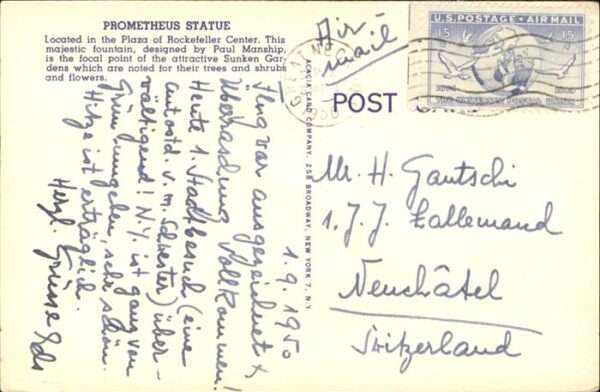 PROMETHEUS STATUE
Located in the Plaza of Rockefeller Center. This
majestic fountain, designed by Paul Manship,
is the focal point of the attractive Sunken Gar-
dens which are noted for their trees and shrubs
and flowers.
Air-
mail
U.S. POSTAGE · AIR MAIL
15 15
POST
ACACIA CARD COMPANY, 258 BROADWAY, NEW YORK 7, N.Y.
1.9.1950
Flug war ausgezeichnet &
Überraschung vollkommen!
Heute 1. Stadtbesuch (eine
v. m. Schwester) über-
wältigend! N.Y. ist ganz von
Grün umgeben, sehr schön.
Hitze ist erträglich.
Herzl. Grüsse
Mr. H. Gautschi
1. J. J. Lallemand
Neuchâtel
Switzerland